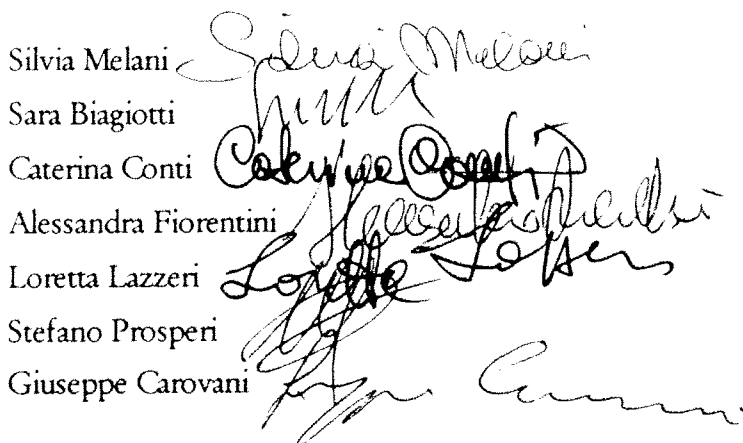 Silvia Melani Silvia Melani
Sara Biagiotti
Caterina Conti Caterina Conti
Alessandra Fiorentini
Loretta Lazzeri Loretta Lazzeri
Stefano Prosperi
Giuseppe Carovani